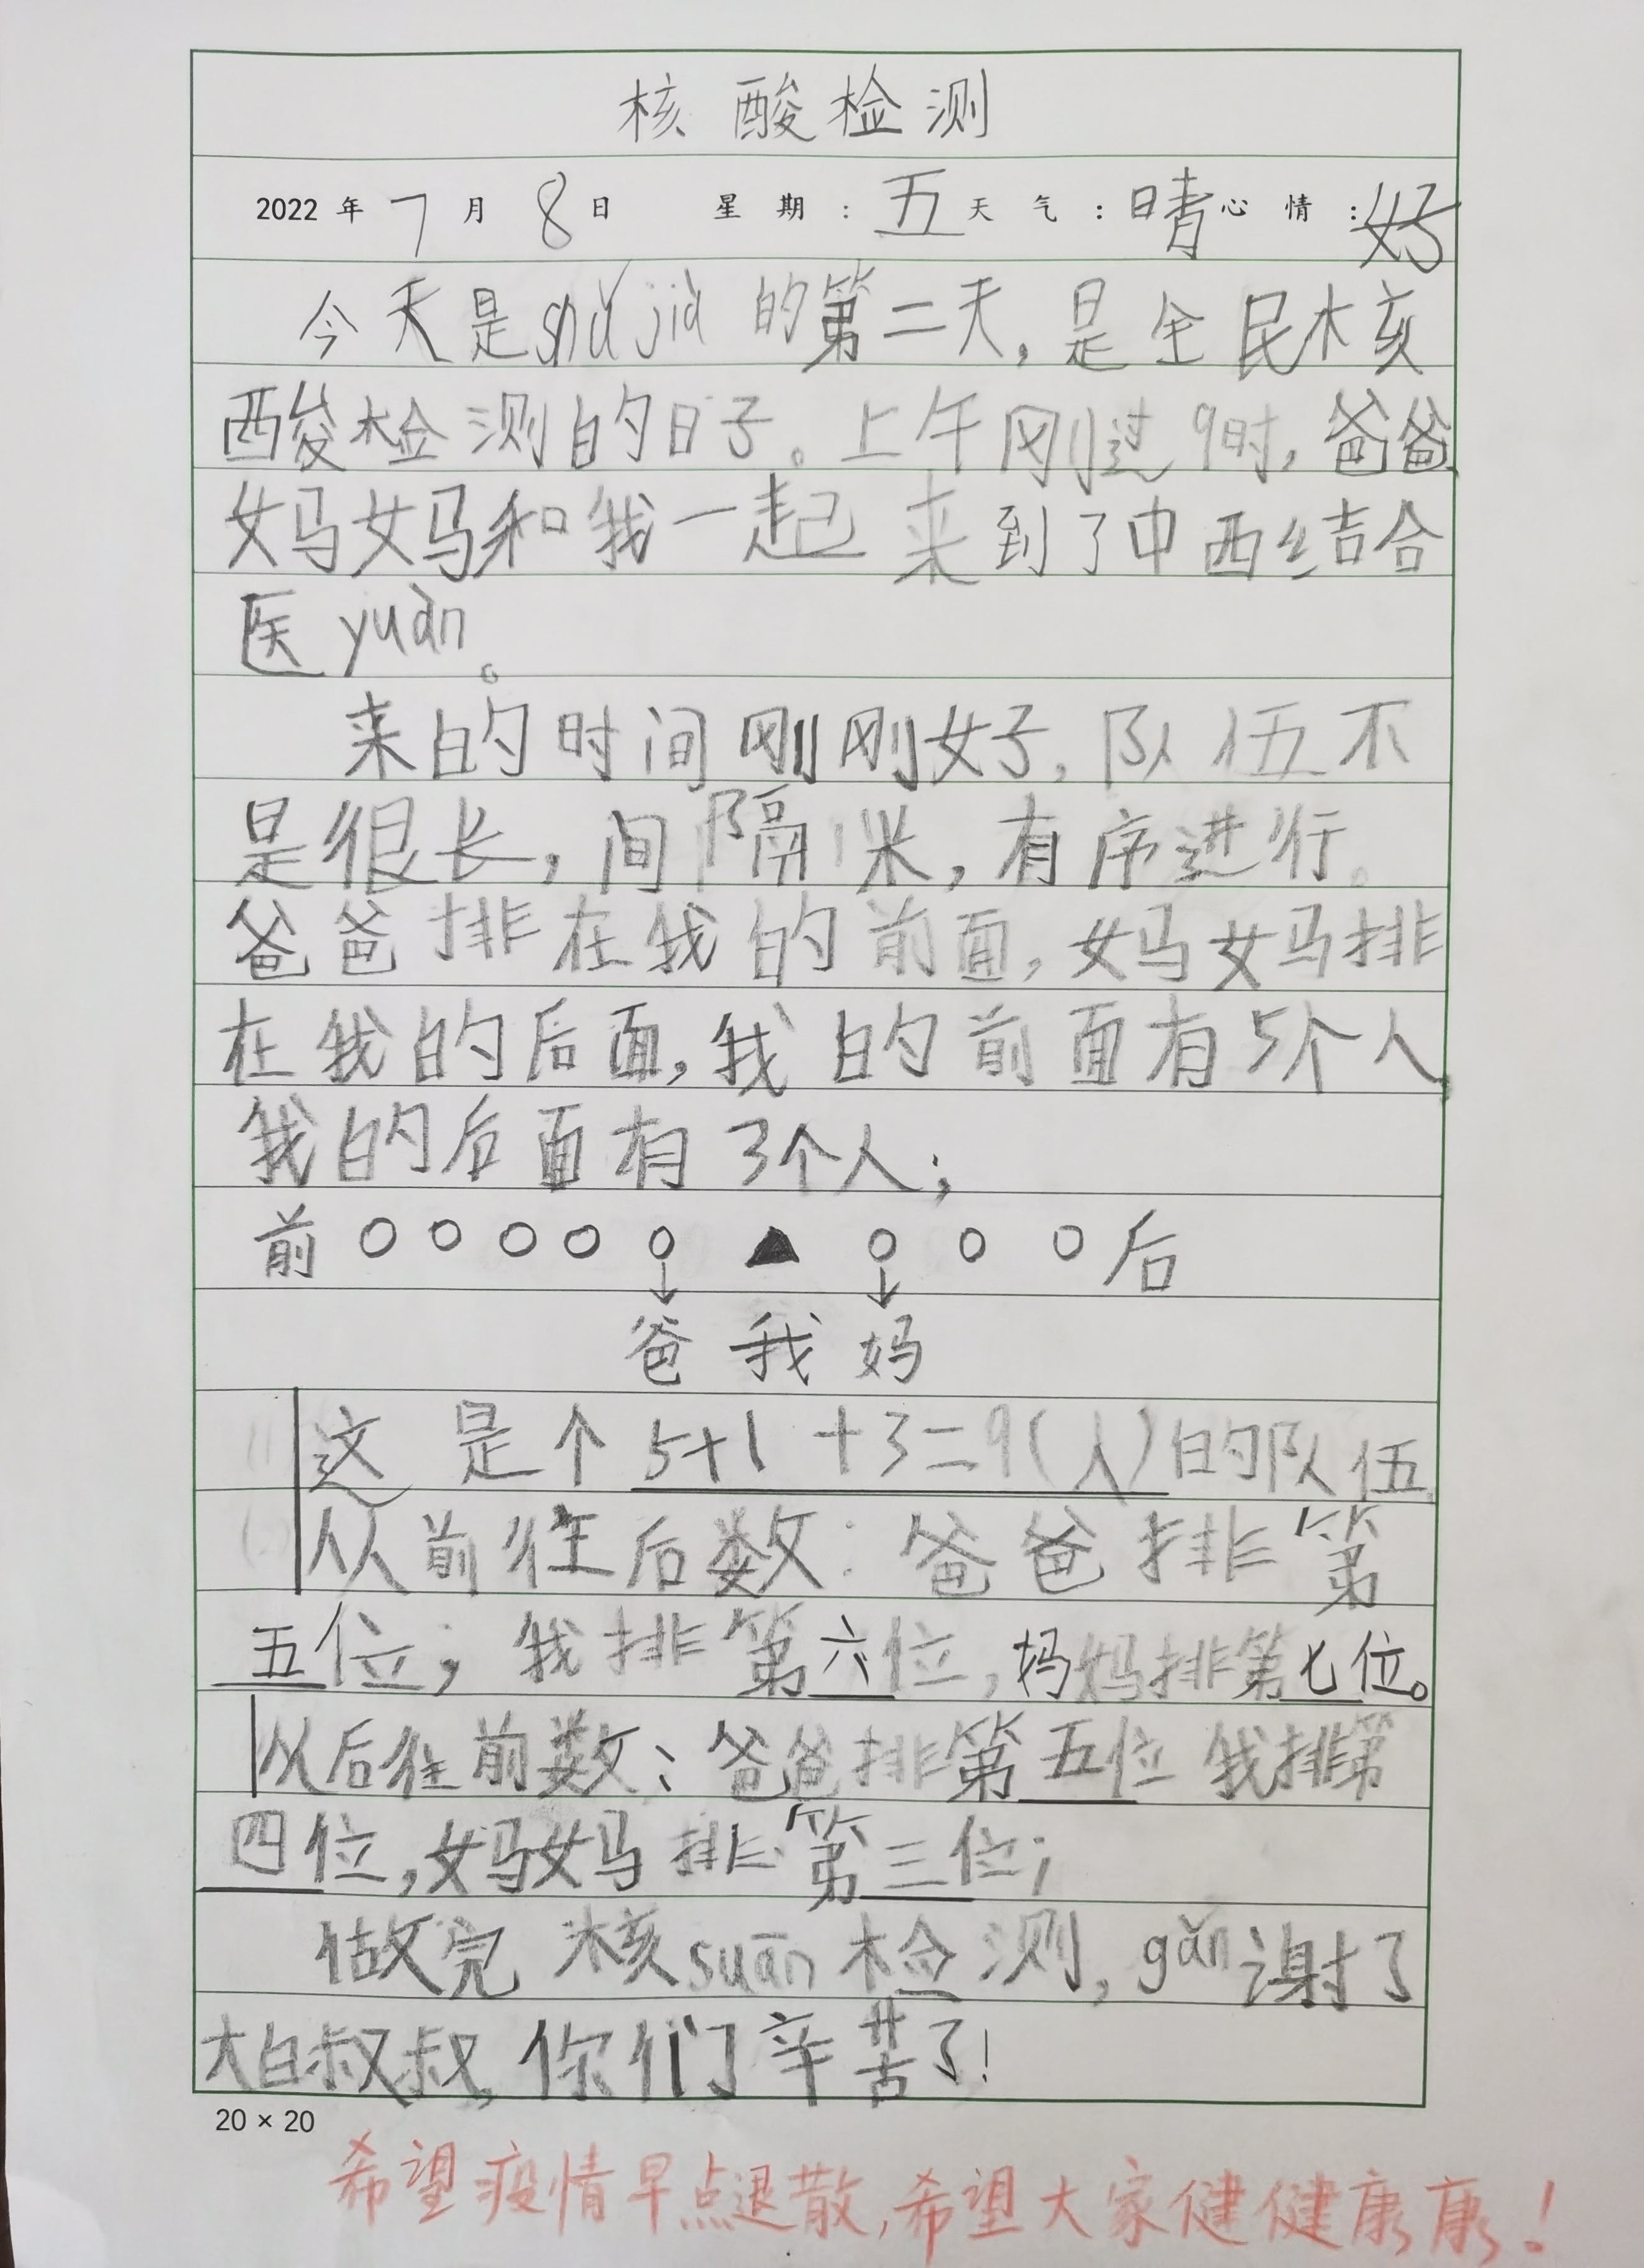 核酸检测
2022年7月8日 星期:五天气:晴心情:好
今天是shǔjià的第二天,是全民核
酸检测的日子。上午刚过9时,爸爸,
妈妈和我一起来到了中西结合
医yuàn。
来的时间刚刚好,队伍不
是很长,间隔1米,有序进行。
爸爸排在我的前面,妈妈排
在我的后面,我的前面有5个人,
我的后面有3个人;
前○○○○○▲○○○后
↓ ↓
爸我妈
这是个5+1+3=9(人)的队伍,
从前往后数:爸爸排第
五位;我排第六位,妈妈排第七位。
从后往前数:爸爸排第五位 我排第
四位,妈妈排第三位;
做完核suān检测,gǎn谢了
大白叔叔,你们辛苦了!
20×20
希望疫情早点退散,希望大家健健康康!